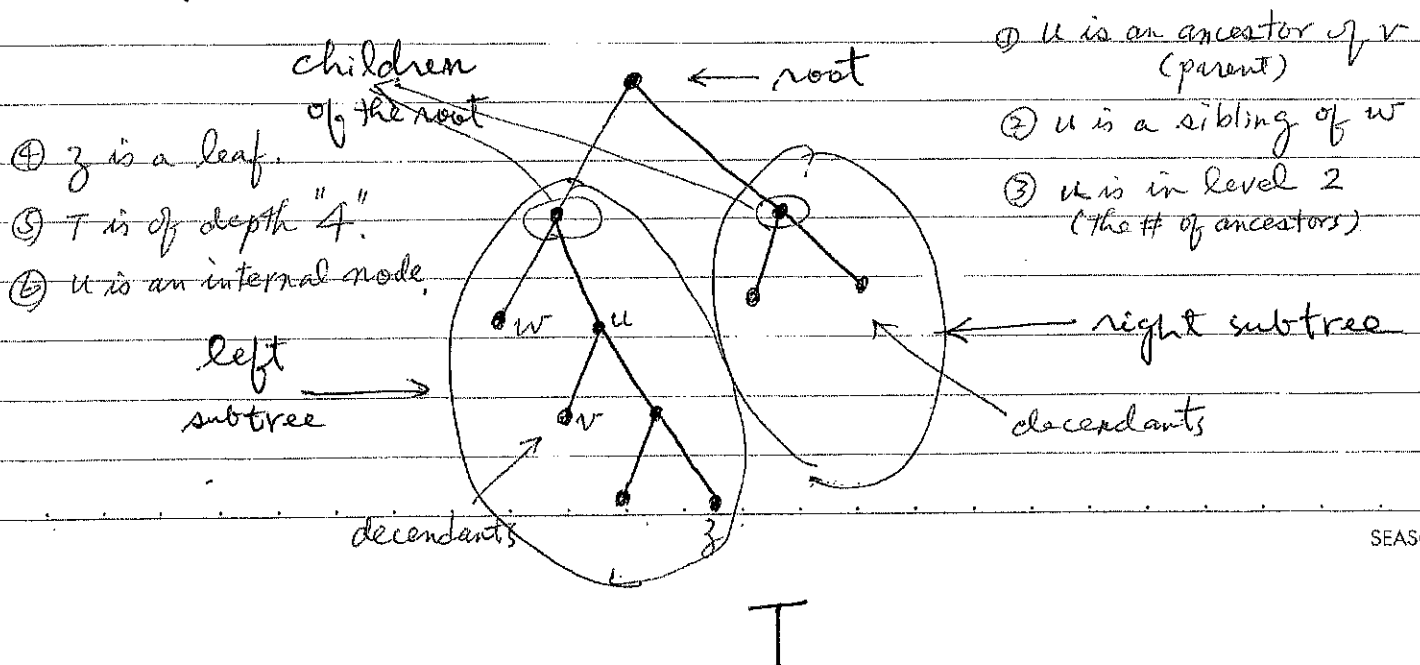 children
of the root
← root
① u is an ancestor of v
(parent)
② u is a sibling of w
③ u is in level 2
(the # of ancestors)
④ z is a leaf.
⑤ T is of depth "4".
⑥ u is an internal node.
w
u
v
z
left
subtree
right subtree
decendants
decendants
SEAS
T